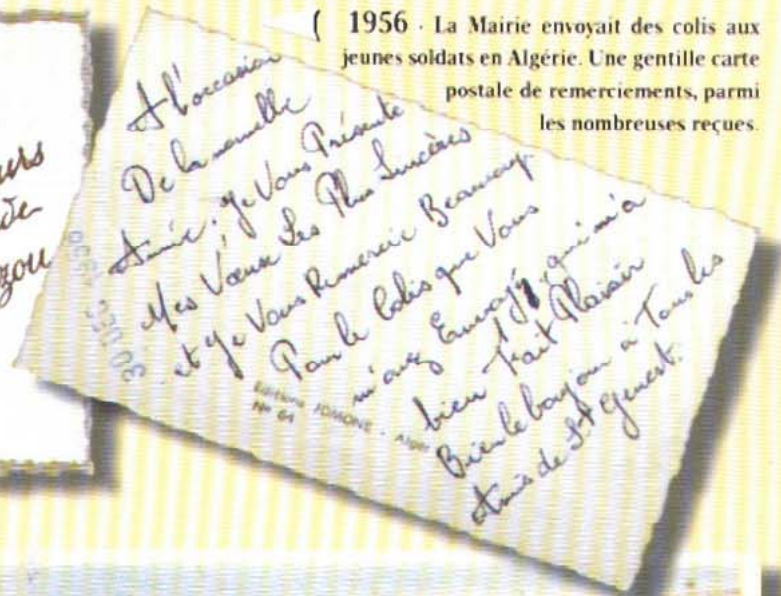 ( 1956 - La Mairie envoyait des colis aux
jeunes soldats en Algérie. Une gentille carte
postale de remerciements, parmi
les nombreuses reçues.
A l'occasion
De la nouvelle
Année. Je Vous Présente
Mes Vœux Les Plus Sincères
et Je Vous Remercie Beaucoup
Pour le Colis que Vous
m'avez Envoyé, qui m'a
bien Fait Plaisir
Bien le bonjour à Tous les
Amis de St Genest.
30 DEC
Editions JOMONE - Alger
N° 64
de